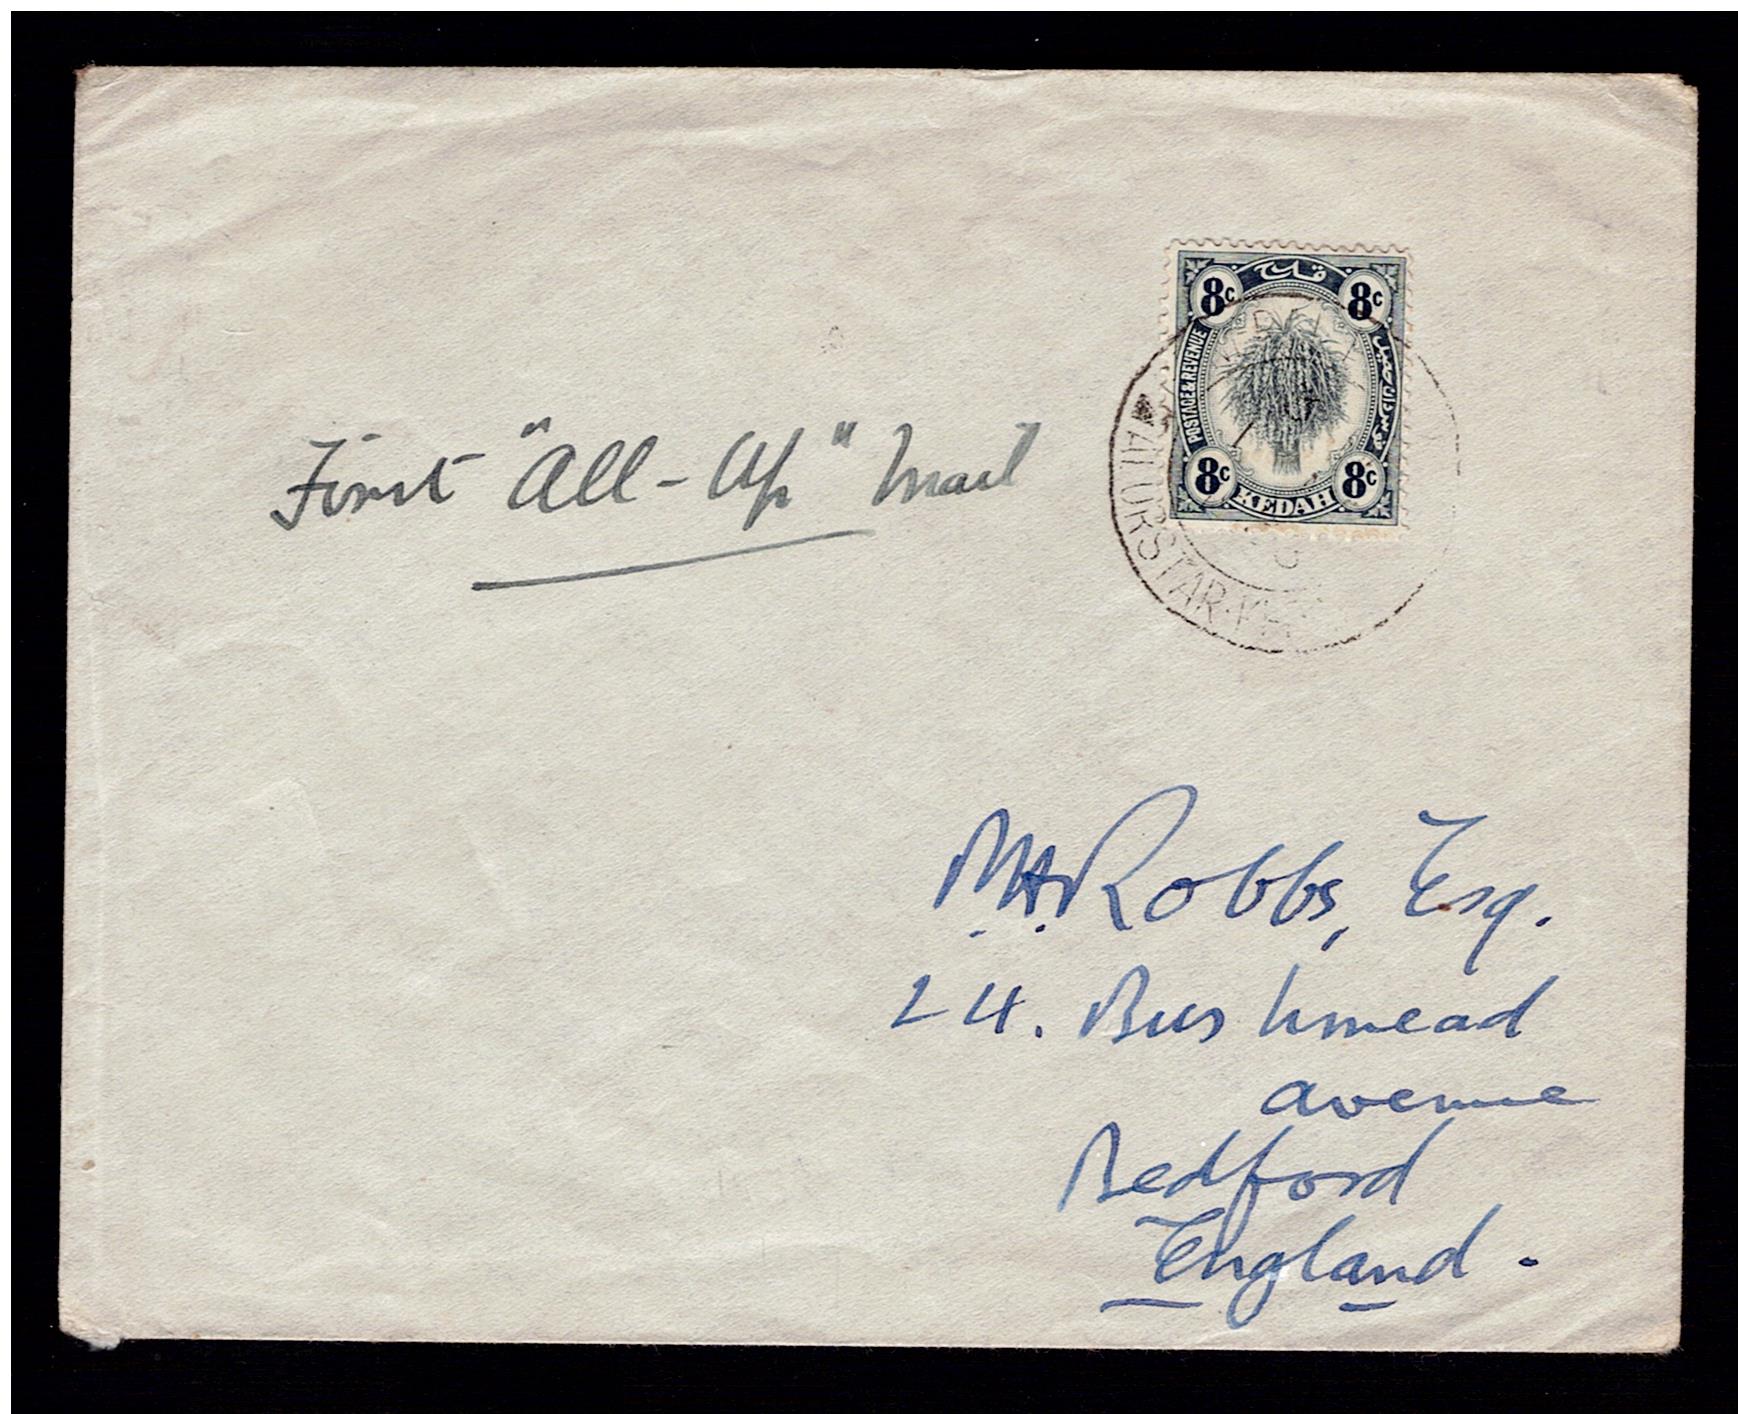 قدح
8c 8c
POSTAGE & REVENUE
8c 8c
KEDAH
ALURSTAR
First "All-Up" Mail
M.H. Robbs, Esq.
24. Bushmead
avenue
Bedford
England.